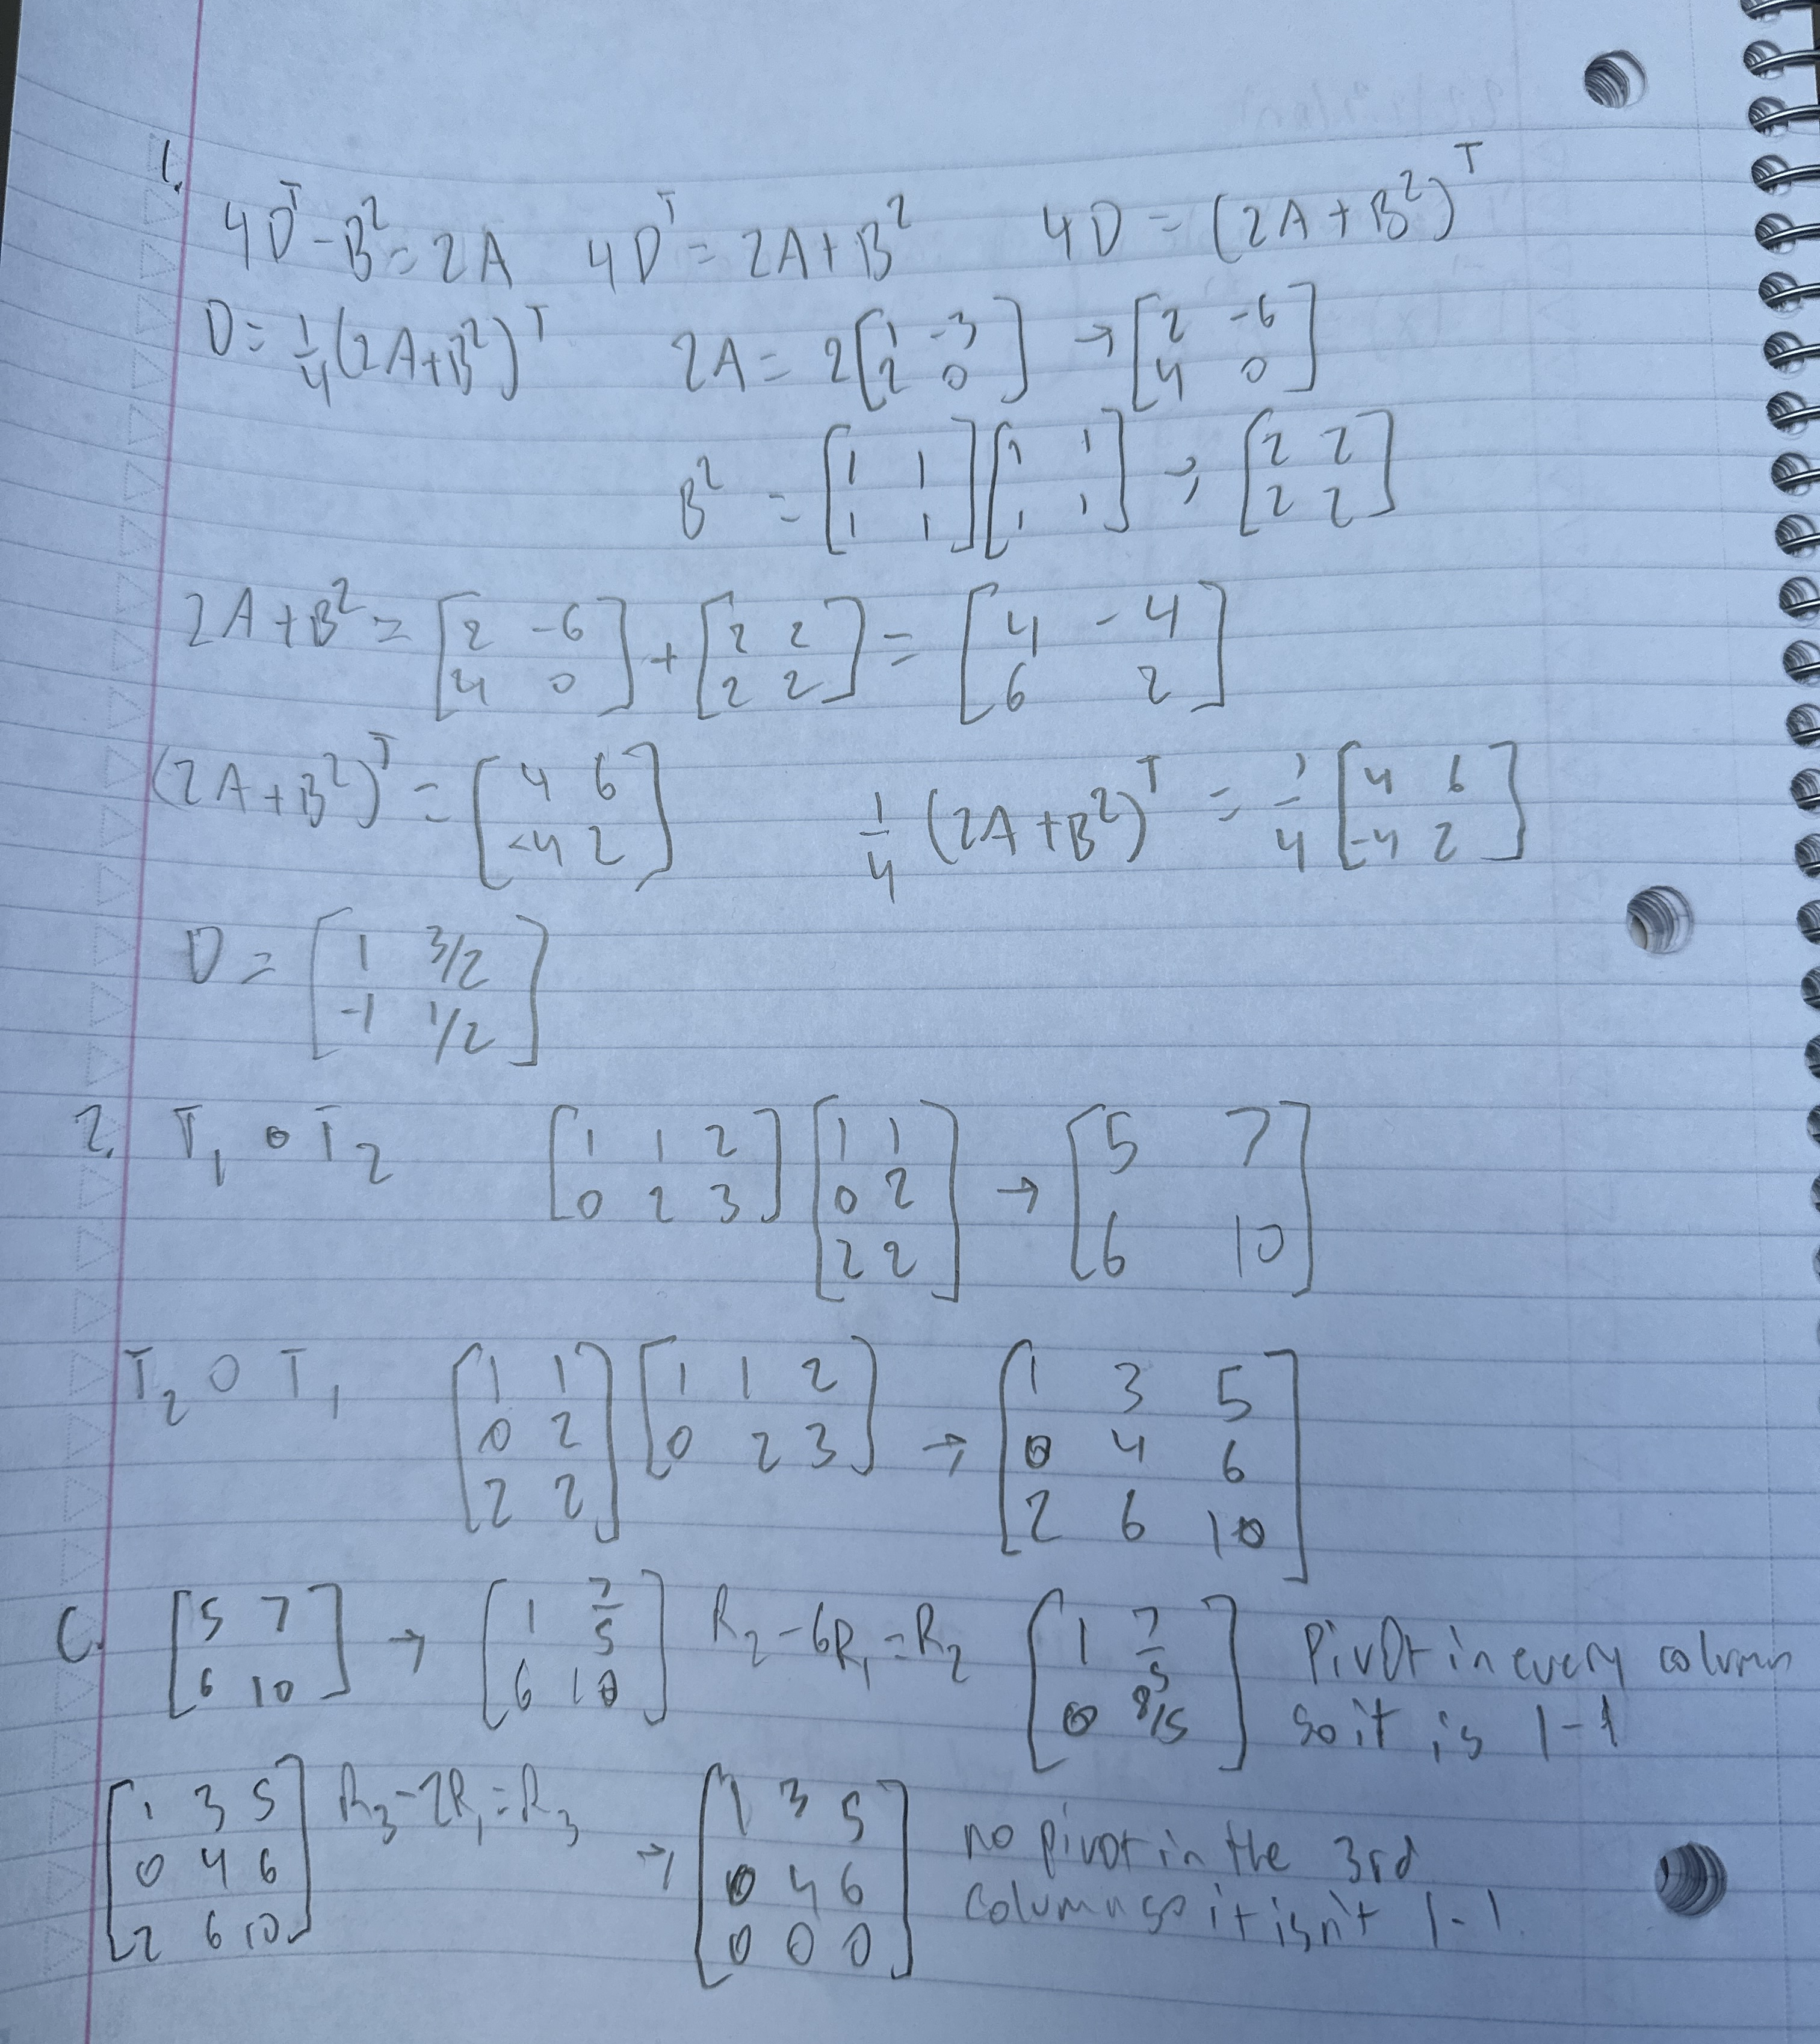 1.
4Dᵀ - B² = 2A   4Dᵀ = 2A + B²   4D = (2A + B²)ᵀ
D = 1/4 (2A + B²)ᵀ   2A = 2 [1 -3; 2 0] → [2 -6; 4 0]
B² = [1 1; 1 1] [1 1; 1 1] → [2 2; 2 2]
2A + B² = [2 -6; 4 0] + [2 2; 2 2] = [4 -4; 6 2]
(2A + B²)ᵀ = [4 6; -4 2]   1/4 (2A + B²)ᵀ = 1/4 [4 6; -4 2]
D = [1 3/2; -1 1/2]
2. T₁ ∘ T₂   [1 1 2; 0 2 3] [1 1; 0 2; 2 2] → [5 7; 6 10]
T₂ ∘ T₁   [1 1; 0 2; 2 2] [1 1 2; 0 2 3] → [1 3 5; 0 4 6; 2 6 10]
C. [5 7; 6 10] → [1 7/5; 6 10] R₂ - 6R₁ = R₂ [1 7/5; 0 8/5] Pivot in every column
so it is 1-1
[1 3 5; 0 4 6; 2 6 10] R₃ - 2R₁ = R₃ → [1 3 5; 0 4 6; 0 0 0] no pivot in the 3rd
column so it isn't 1-1.